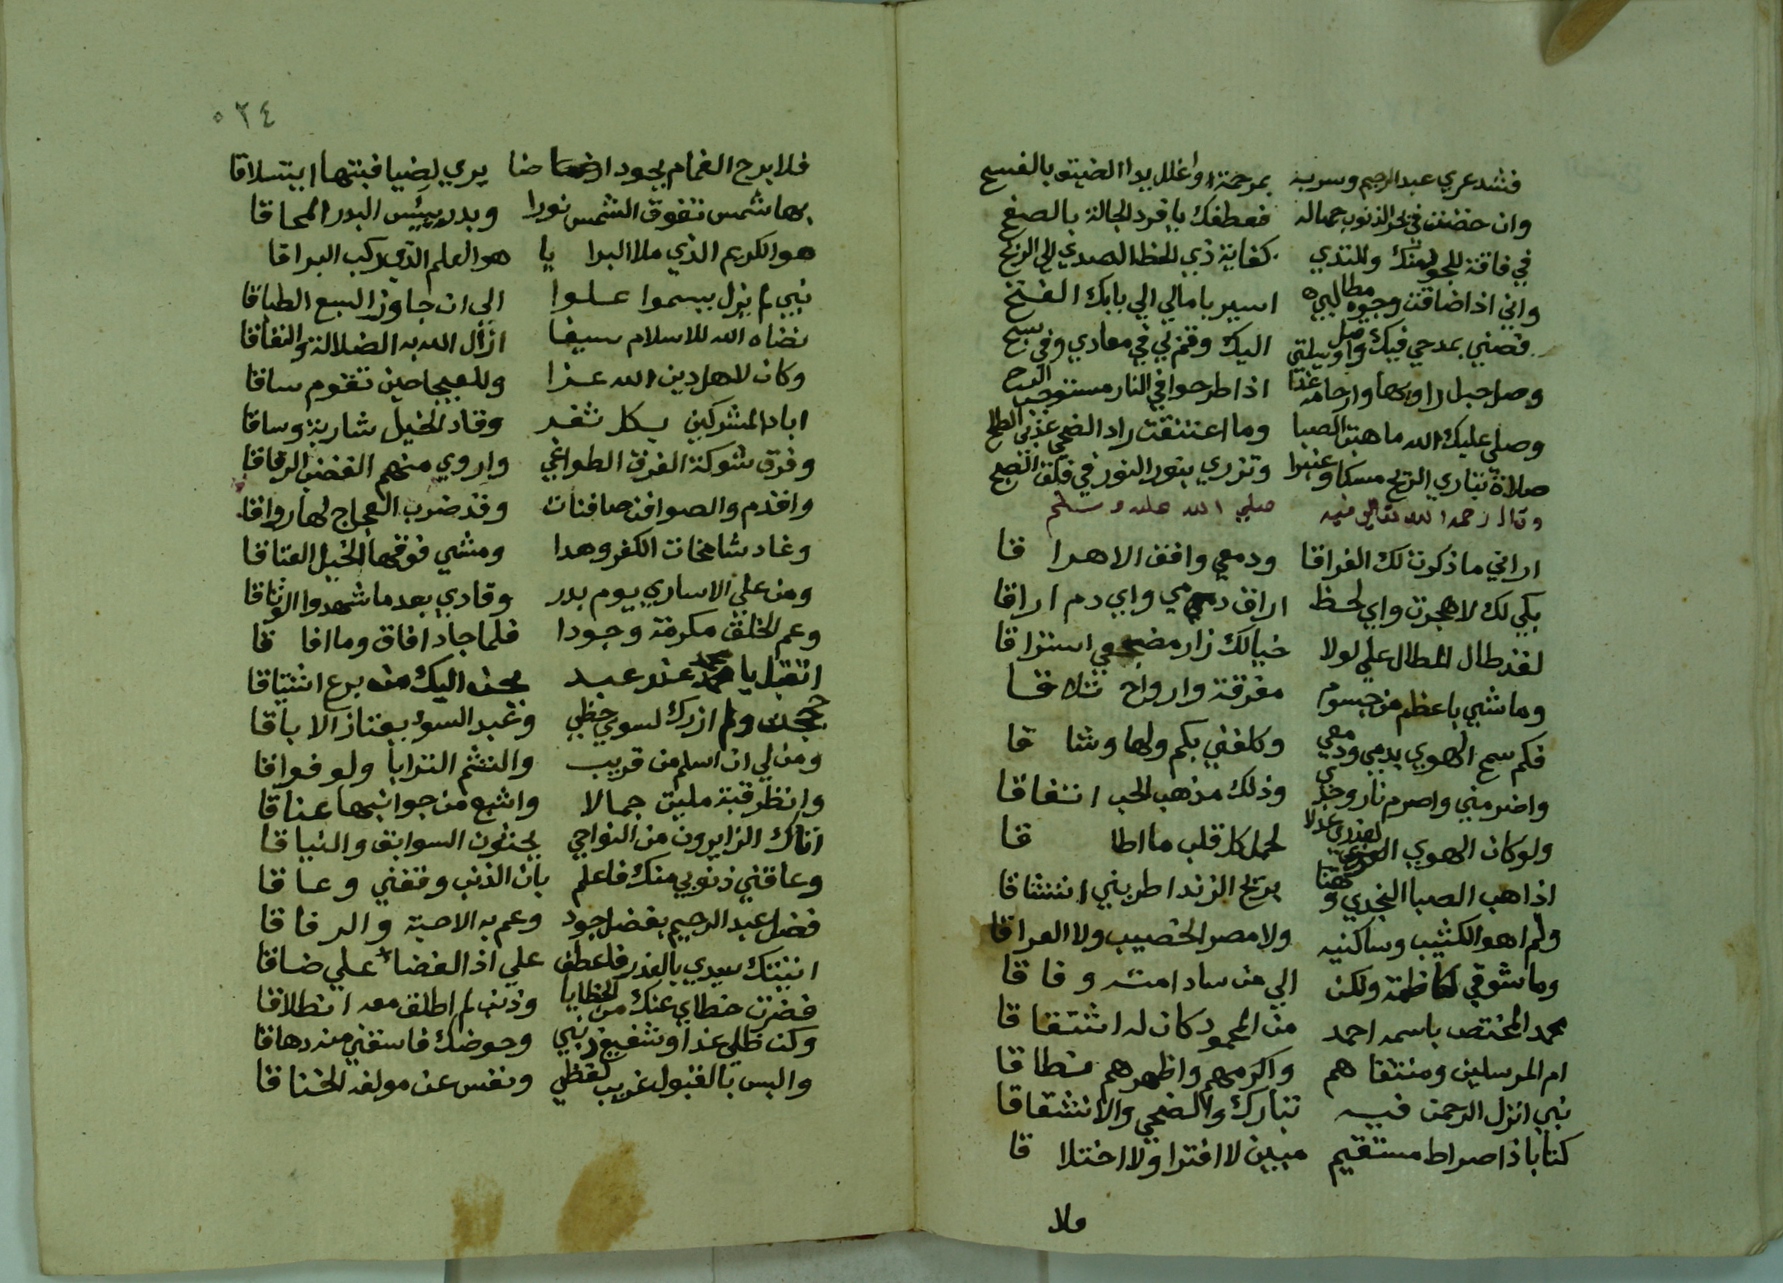 فشد عري عبد الرحيم وسربه بمرحمة واغلل يدا الضيق بالفسح
وان خضت في بحر الذنوب جهالة فعطفك يا فرد الجلالة بالصفح
في فاقة للجود منك وللندي كفاية ذي الحظ الصدي الي الربح
واني اذا ضاقت وجوه مطالبي اسير بامالي الي بابك الفتح
فصني بمدحي فيك واصل وسيلتي اليك وقم لي في معادي وفي
وصل حبل راويها وارحامه غدا اذا طرحوا في النار مستوجب
وصلي عليك الله ما هبت الصبا وما اعتنقت راد الضحي عذبن الطلح
صلاة تباري الريح مسكا وعنبرا وتزري بنور النور في فلق الصبح
وقال رحمه الله تعالي فيه صلي الله عليه وسلم
اراني ما ذكرت لك الفراقا ودمعي وافق الاهرا قا
بكي لك لا هجرت واي لحظ اراق دمي واي دم اراقا
لقد طال المطال علي لولا خيالك زار مضجعي استراقا
وما شيي باعظم من جسوم مفرقة وارواح تلاقا
فكم سمح الهوي بدمي ودمعي وكلفني بكم ولها وشا قا
واضرمني واصرم نار وجدي وذلك مذهب الحب اتفاقا
ولو كان الهوي العذري عدلا لحمل كل قلب ما اطا قا
اذا هب الصبا النجدي وهنا بريح الرند اطربني انتشاقا
ولم اهو الكثيب وساكنيه ولا مصر الخصيب ولا العراقا
وما شوقي لكاظمة ولكن الي من ساد امته وفا قا
محمد المختص باسمه احمد من المحمود كان له اشتقا قا
ام المرسلين ومنتقا هم واكرمهم واظهرهم نطا قا
نبي انزل الرحمن فيه تبارك والضحي والانشقاقا
كتابا ذا صراط مستقيم مبين لا افترا ولا اختلا قا
ولا
٥٢٤
فلا برح الغمام يجود ارضا يري لضيا قبتها ايتسلاقا
بها شمس تفوق الشمس نورا وبدر يبئس البدر المحاقا
هو الكريم الذي ملا البرا يا هو العلم الذي ركب البراقا
نبي لم يزل يسموا علوا الي ان جاوز السبع الطباقا
نضاه الله للاسلام سيفا ازال الله به الضلالة والنفاقا
وكان لاهل دين الله عزا وللهيجا حين تقوم ساقا
اباد المشركين بكل ثغر وقاد الخيل شاربة وساقا
وفرق شوكة الفرق الطواغي واروي منهم القضب الرقاقا
واقدم والصوافن صافنات وقد ضرب العجاج لها رواقا
وغاد شامخات الكفر وهدا ومشي فوقها الخيل العتاقا
ومن علي الاساري يوم بدر وفادي بعد ما شهدوا الوثاقا
وعم الخلق مكرمة وجودا فلما جاد افاق وما افا قا
اتقبل يا محمد عذر عبد يحن اليك من برع اشتياقا
حججت ولم ازرك لسوي حظي وعبد السوء يعتاز الاباقا
ومن لي ان اسلم من قريب والتثم الترابا ولو فواقا
وانظر قبة مليت جمالا واشبع من جوانبها عناقا
اتاك الزايرون من النواحي يحثون السوابق والنياقا
وعاقني ذنوبي منك فاعلم بان الذنب وقفني وعا قا
فضل عبد الرحيم بفضل جود وعم به الاحبة والرفا قا
اتيتك سيدي بالعذر فاعطف علي اذ الفضاء علي ضاقا
فضرت خطاي عنك من الخطايا وذنب لم اطلق معه انطلاقا
وكن ظلي غدا وشفيع ذنبي وحوضك فاسقني منه دهاقا
والبس بالقبول غريب لفظي ونفس عن مولفه الخناقا